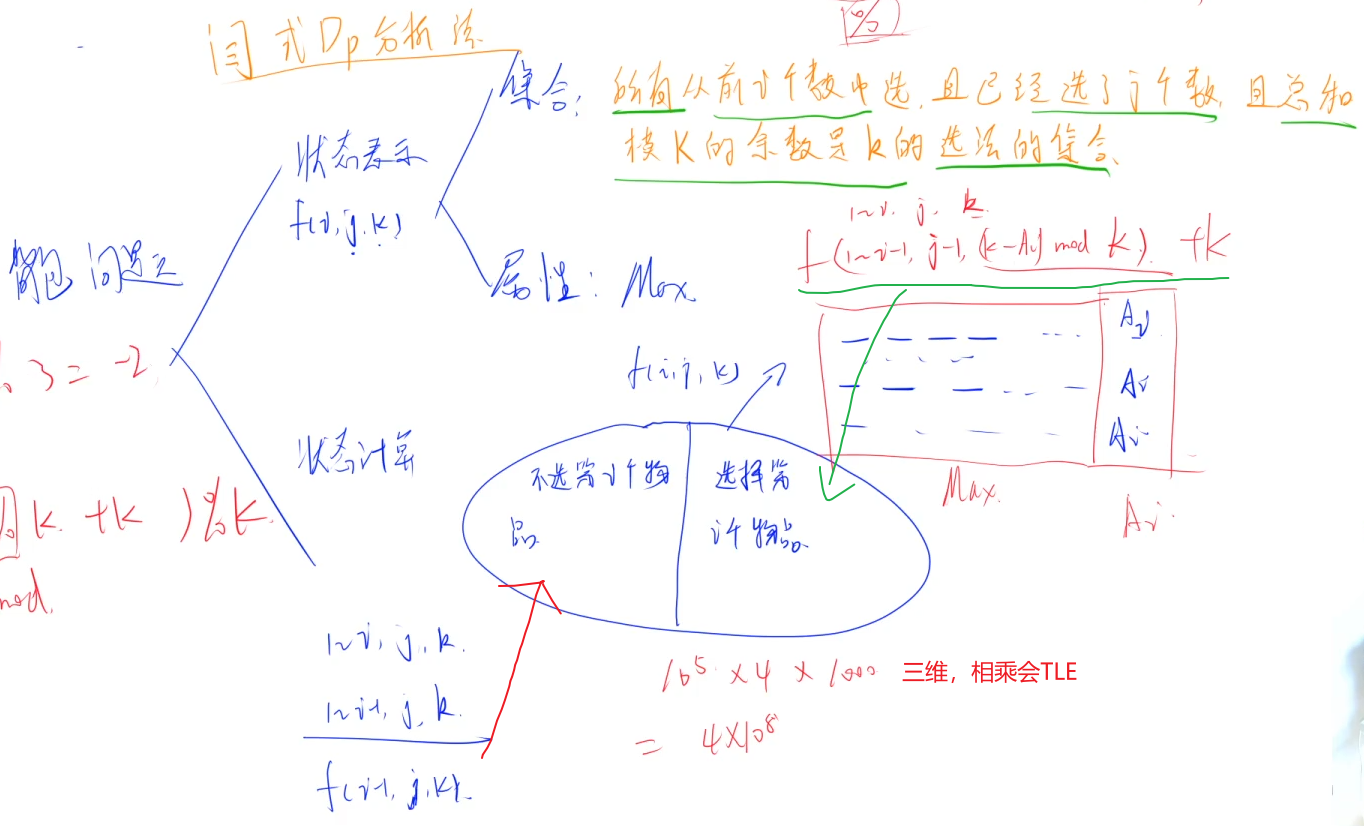 闫式Dp分析法
[%)
集合: 所有从前i个数中选,且已经选了j个数,且总和
模K的余数是k的选法的集合
状态表示
f(i,j,k)
1~i. j. k.
f(1~i-1, j-1, (k-Ai) mod K). +K
背包问题
属性: Max
Ai
3 = -2
f(i,j,k)
Ai
Ai
状态计算
不选第i个物品
选择第i个物品
Max.
Ai
k. +k )%k
mod.
1~i, j, k.
1~i-1, j, k.
f(i-1, j, k).
10⁵ × 4 × 1000 三维,相乘会TLE
= 4×10⁸